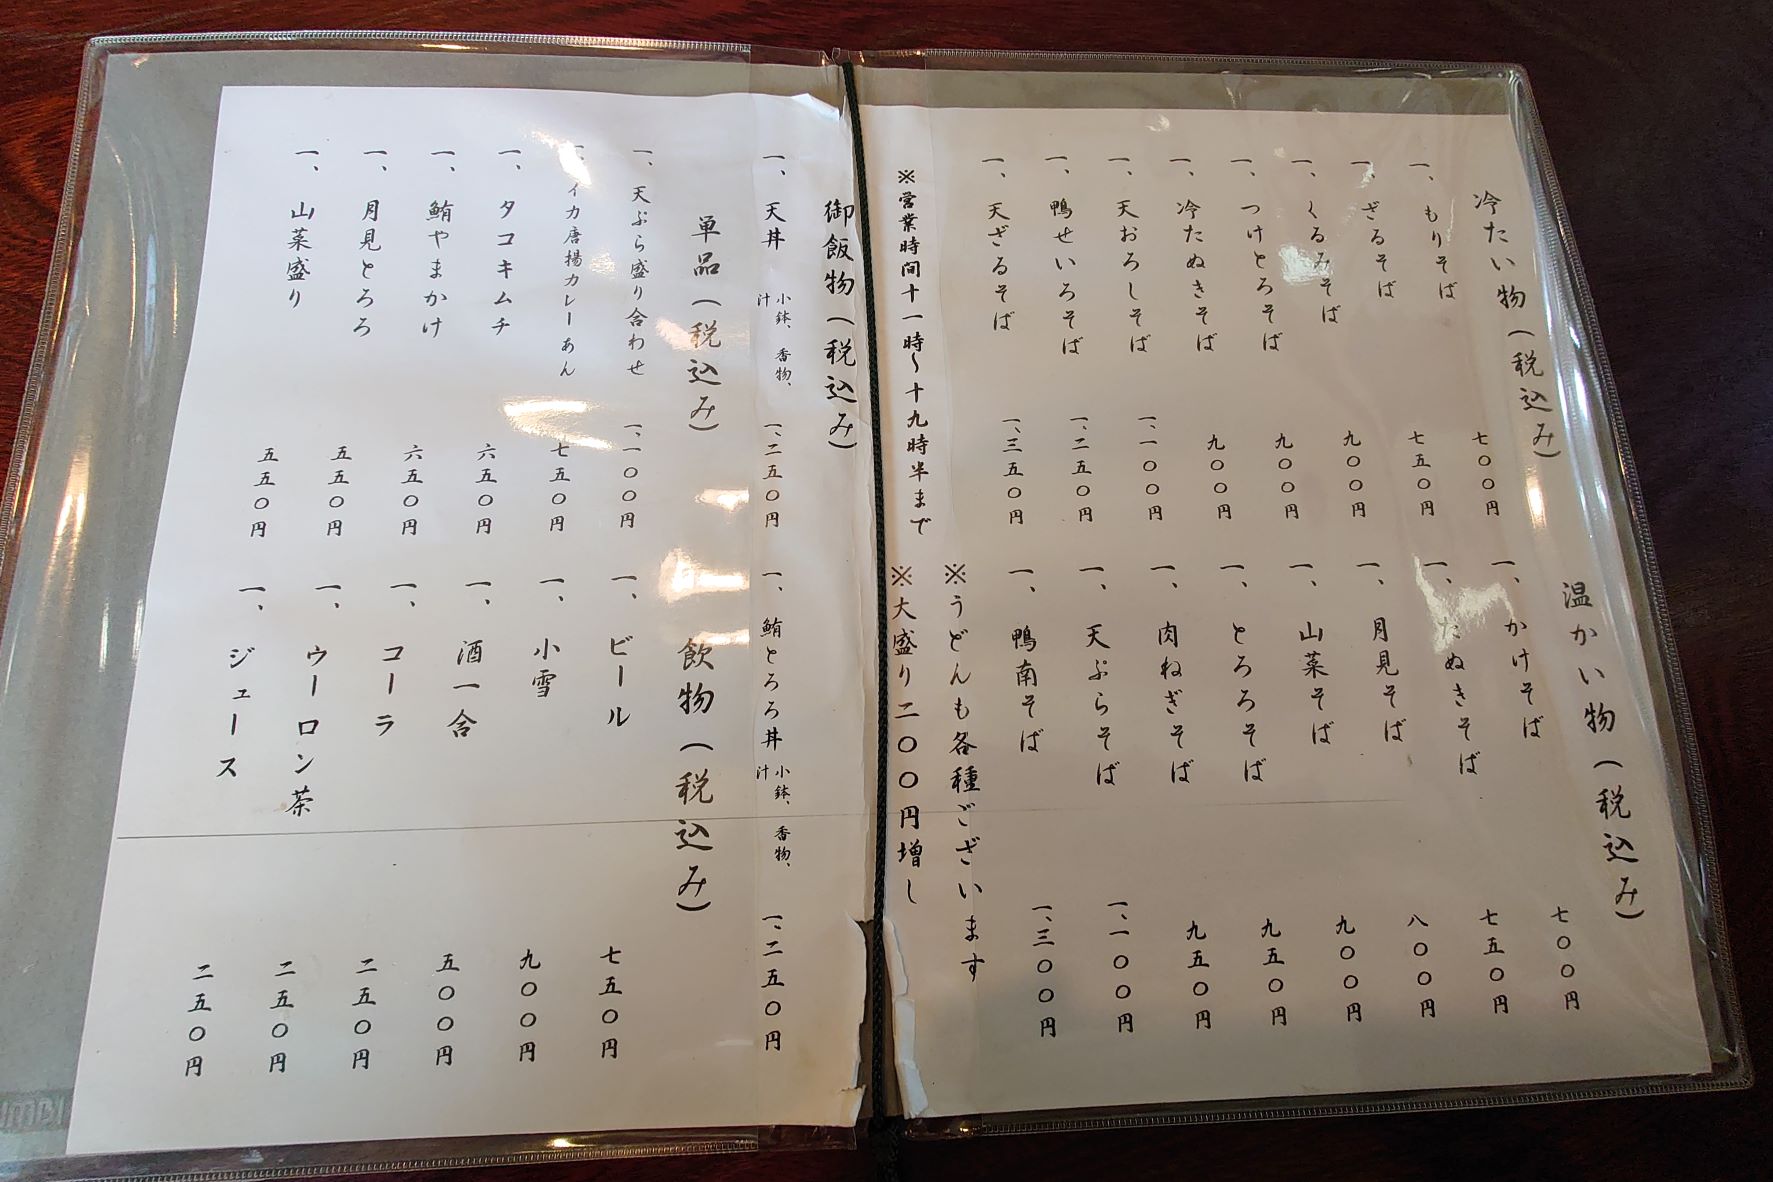 冷たい物(税込み)
一、もりそば 七〇〇円
一、ざるそば 七五〇円
一、くるみそば 九〇〇円
一、つけとろそば 九〇〇円
一、冷たぬきそば 九〇〇円
一、天おろしそば 一、一〇〇円
一、鴨せいろそば 一、二五〇円
一、天ざるそば 一、三五〇円
温かい物(税込み)
一、かけそば 七〇〇円
一、たぬきそば 七五〇円
一、月見そば 八〇〇円
一、山菜そば 九〇〇円
一、とろろそば 九五〇円
一、肉ねぎそば 九五〇円
一、天ぷらそば 一、一〇〇円
一、鴨南そば 一、三〇〇円
※うどんも各種ございます
※営業時間十一時〜十九時半まで
※大盛り二〇〇円増し
御飯物(税込み)
一、天丼 小鉢、香物、汁 一、二五〇円
一、鮪とろろ丼 小鉢、香物、汁 一、二五〇円
単品(税込み)
一、天ぷら盛り合わせ 一、一〇〇円
一、イカ唐揚カレーあん 七五〇円
一、タコキムチ 六五〇円
一、鮪やまかけ 六五〇円
一、月見とろろ 五五〇円
一、山菜盛り 五五〇円
飲物(税込み)
一、ビール 七五〇円
一、小雪 九〇〇円
一、酒一合 五〇〇円
一、コーラ 二五〇円
一、ウーロン茶 二五〇円
一、ジュース 二五〇円